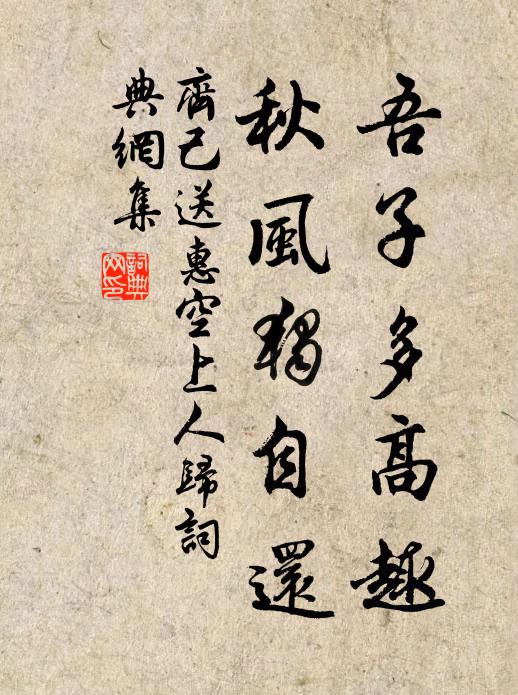 吾子多高趣
秋風獨自還
齊己送惠空上人歸詞
典網集
詞典
网印